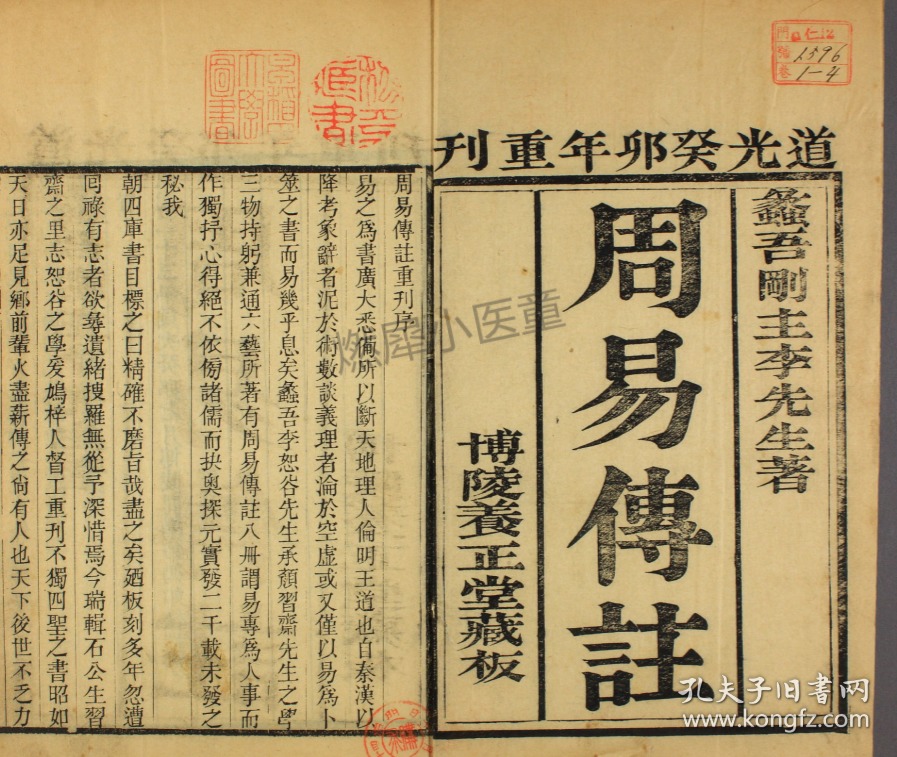 道光癸卯年重刊
蠡吾剛主李先生著
周易傳註
博陵養正堂藏板
周易傳註重刊序
易之爲書廣大悉備所以斷天地理人倫明王道也自秦漢以
降考象辭者泥於術數談義理者淪於空虛或又僅以易爲卜
筮之書而易幾乎息矣蠡吾李恕谷先生承顏習齋先生之學
三物持躬兼通六藝所著有周易傳註八册謂易專爲人事而
作獨抒心得絕不依傍諸儒而抉奧探元實發二千載未發之
秘我
朝四庫書目標之曰精確不磨旨哉盡之矣廼板刻多年忽遭
囘祿有志者欲尋遺緒搜羅無從予深惜焉今瑞輯石公生習
齋之里志恕谷之學爰鳩梓人督工重刊不獨四聖之書昭如
天日亦足見鄉前輩火盡薪傳之尙有人也天下後世不乏力
仁12
1596
1-4
圖書
燃犀小医童
孔夫子旧书网
www.kongfz.com